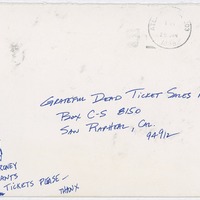 Grateful Dead Ticket Sales
Box C-S 8150
San Raphael, Cal.
94912
Tickets Please –
Thanx